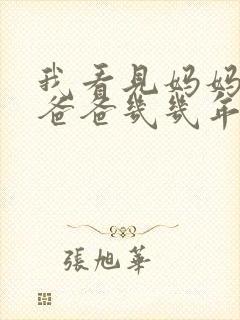 我看見妈妈
爸爸幾幾年
張旭華